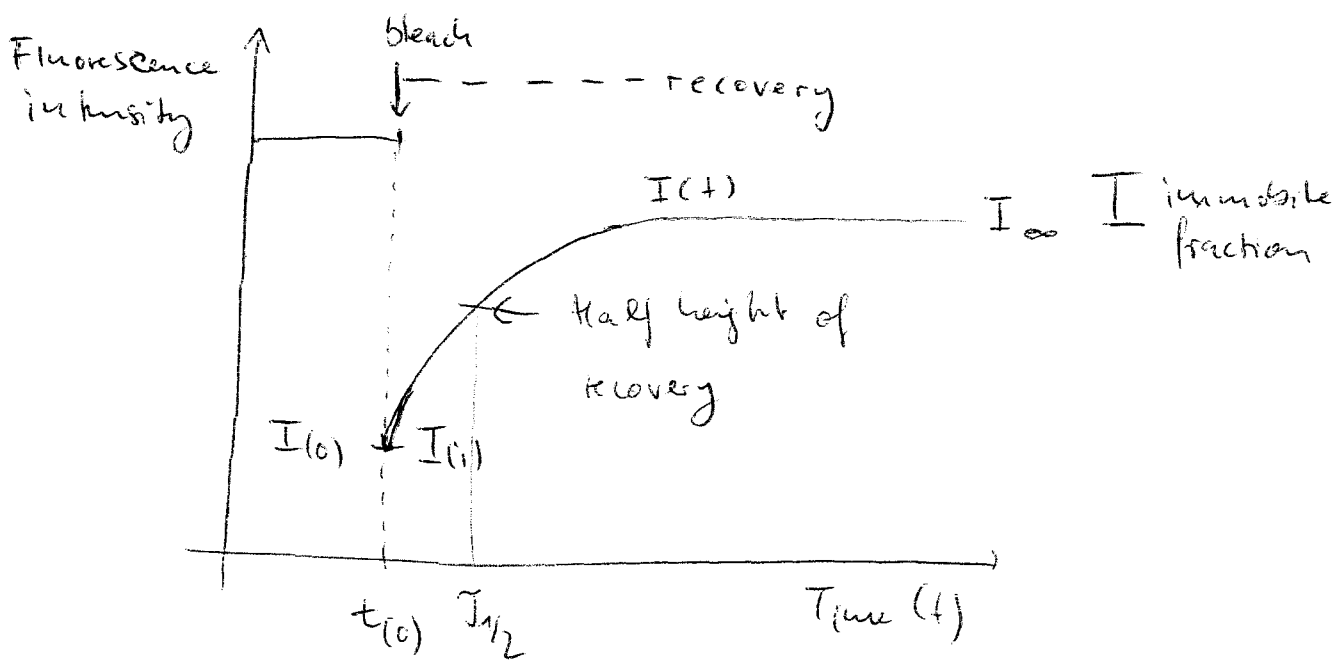 Fluorescence
intensity
bleach
recovery
I(t)
I∞
I immobile
fraction
Half height of
recovery
I(0)
I(i)
t(0)
τ1/2
Time (t)